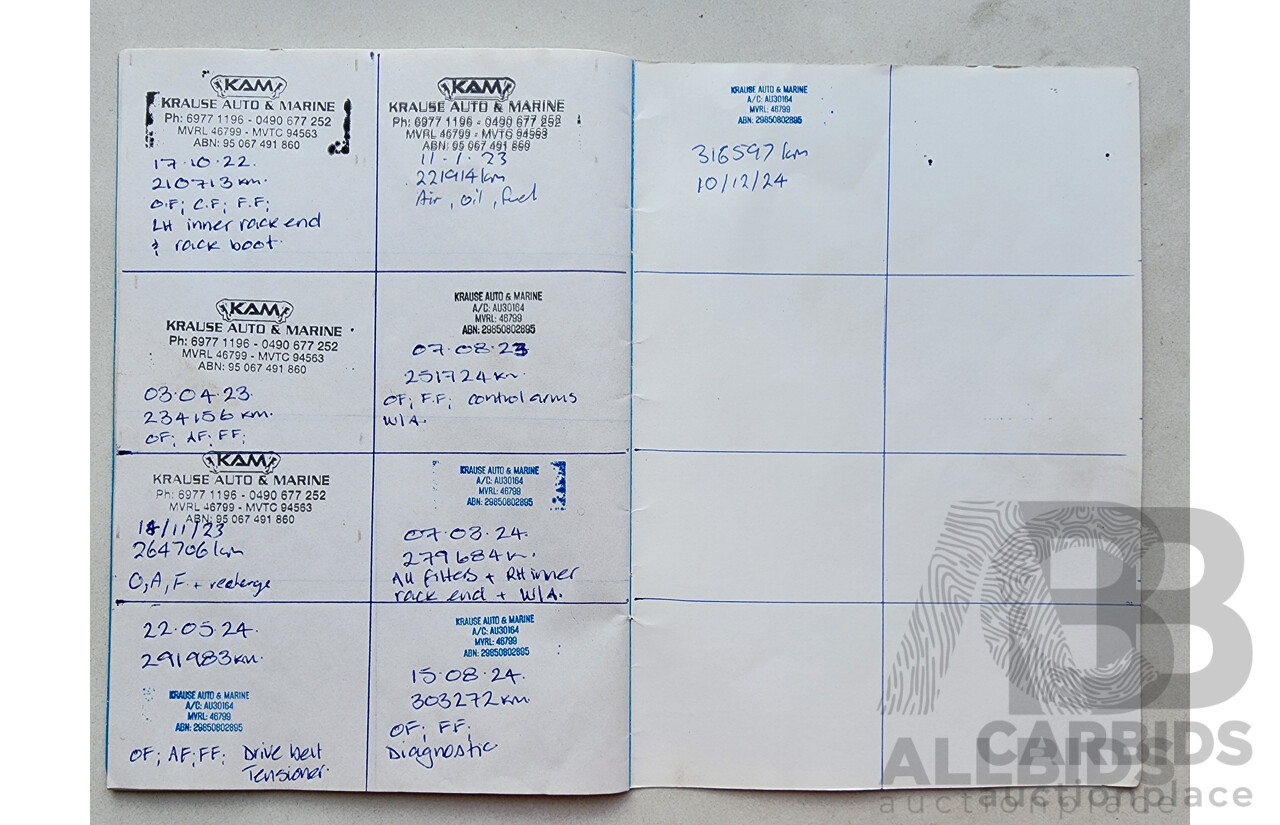 KAM
KRAUSE AUTO & MARINE
Ph: 6977 1196 - 0490 677 252
MVRL 46799 - MVTC 94563
ABN: 95 067 491 860
17.10.22.
210713km.
O.F; C.F; F.F;
LH inner rack end
& rack boot.
KAM
KRAUSE AUTO & MARINE
Ph: 6977 1196 - 0490 677 252
MVRL 46799 - MVTC 94563
ABN: 95 067 491 860
11-1-23
221914km
Air, oil, fuel
KAM
KRAUSE AUTO & MARINE
Ph: 6977 1196 - 0490 677 252
MVRL 46799 - MVTC 94563
ABN: 95 067 491 860
03.04.23.
234156km.
OF; AF; FF;
KRAUSE AUTO & MARINE
A/C: AU30164
MVRL: 46799
ABN: 29850802895
07.08.23
251724km.
OF; F.F; control arms
W/A.
KAM
KRAUSE AUTO & MARINE
Ph: 6977 1196 - 0490 677 252
MVRL 46799 - MVTC 94563
ABN: 95 067 491 860
/11/23
264706km
O, A, F +
KRAUSE AUTO & MARINE
A/C: AU30164
MVRL: 46799
ABN: 29850802895
07.03.24.
279684k.
All filters + RH inner
rack end + W/A.
22.05.24.
291983km.
KRAUSE AUTO & MARINE
A/C: AU30164
MVRL: 46799
ABN: 29850802895
OF; AF; FF; Drive belt
Tensioner.
KRAUSE AUTO & MARINE
A/C: AU30164
MVRL: 46799
ABN: 29850802895
15.08.24.
303272km.
OF; FF;
Diagnostic
KRAUSE AUTO & MARINE
A/C: AU30164
MVRL: 46799
ABN: 29850802895
316597km
10/12/24
AB
CARBIDS
auctionplace
ALLBIDS
auctionplace